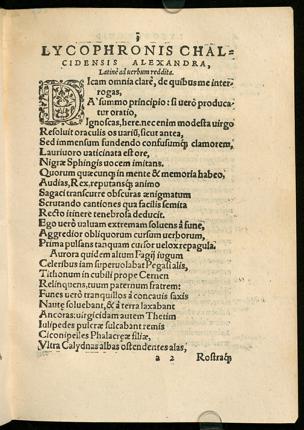 3
LYCOPHRONIS CHAL=
CIDENSIS ALEXANDRA,
Latinè ad uerbum reddita.
DIcam omnia clarè, de quibus me inter
rogas,
A' summo principio: si uerò produca
tur oratio,
Ignoscas, here. nec enim modesta uirgo
Resoluit oraculis os uariū, sicut antea,
Sed immensum fundendo confusumq́; clamorem,
Lauriuoro uaticinata est ore,
Nigræ Sphingis uocem imitans.
Quorum quæcunq; in mente & memoria habeo,
Audias, Rex. reputansq́; animo
Sagaci transcurre obscuras ænigmatum
Scrutando cantiones qua facilis semita
Recto itinere tenebrosa deducit.
Ego uerò ualuam extremam soluens à fune,
Aggredior obliquorum cursum uerborum,
Prima pulsans tanquam cursor uelox repagula.
Aurora quidem altum Fagij iugum
Celeribus iam superuolabat Pegasi alis,
Tithonum in cubili prope Cernen
Relinquens, tuum paternum fratrem:
Funes uerò tranquillos à concauis saxis
Nautę soluebant, & à terra laxabant
Ancoras: uirgicidam autem Thetim
Iulipedes pulcræ sulcabant remis
Ciconipelles Phalacreæ filiæ,
Vltra Calydnas albas ostendentes alas,
a 2 Rostraq́;